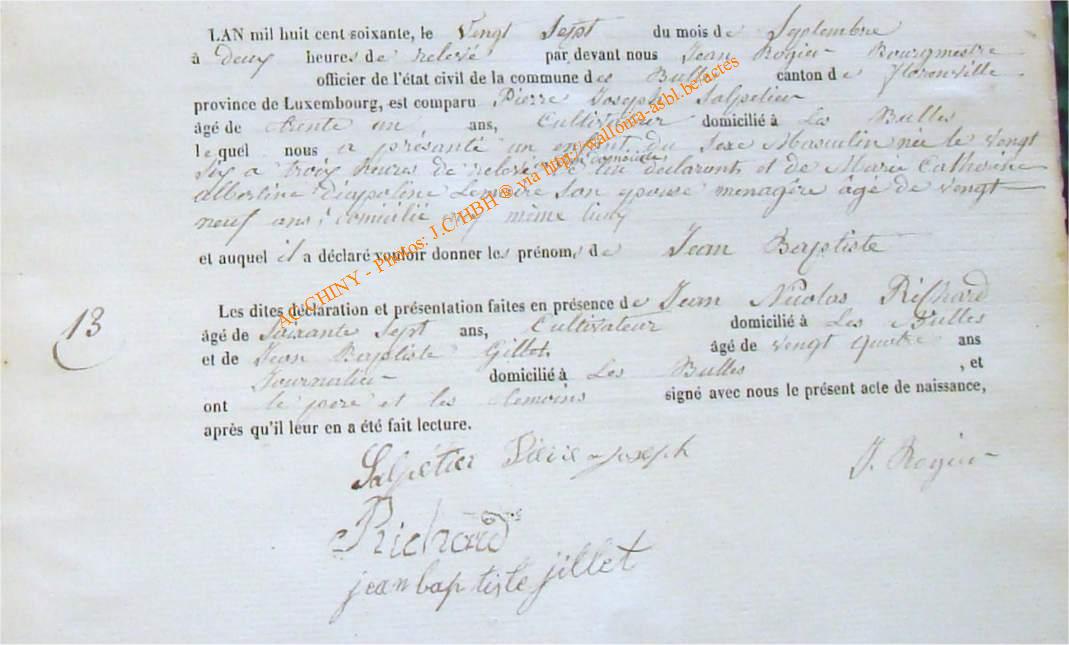 LAN mil huit cent soixante, le Vingt Sept du mois de Septembre
à deux heures de relevé par devant nous Jean Rogier Bourgmestre
officier de l'état civil de la commune des Bulles canton de florenville
province de Luxembourg, est comparu Pierre Joseph Salpetier
âgé de trente un, ans, Cultivateur domicilié à Les Bulles
lequel nous a présanté un enfant du Sexe Masculin née le vingt
six a trois heures de relevé de lui déclarants et de Marie Catherine
albertine Lemoire Son epouse menagère âgé de vengt
neuf ans, domicilié même lieux
et auquel il a déclaré vouloir donner les prénoms de Jean Baptiste
13
Les dites déclaration et présentation faites en présence de Jean Nicolas Richard
âgé de Soixante Sept ans, Cultivateur domicilié à Les Bulles
et de Jean Baptiste Gillet âgé de vengt quatre ans
Journalier domicilié à Les Bulles , et
ont le pere et les temoins signé avec nous le présent acte de naissance,
après qu'il leur en a été fait lecture.
Salpétier Pierre joseph J. Rogier
Richard
jean baptiste jillet
AC CHINY - Photos: J.C HBH ® via http://walloria-asbl.be/actes